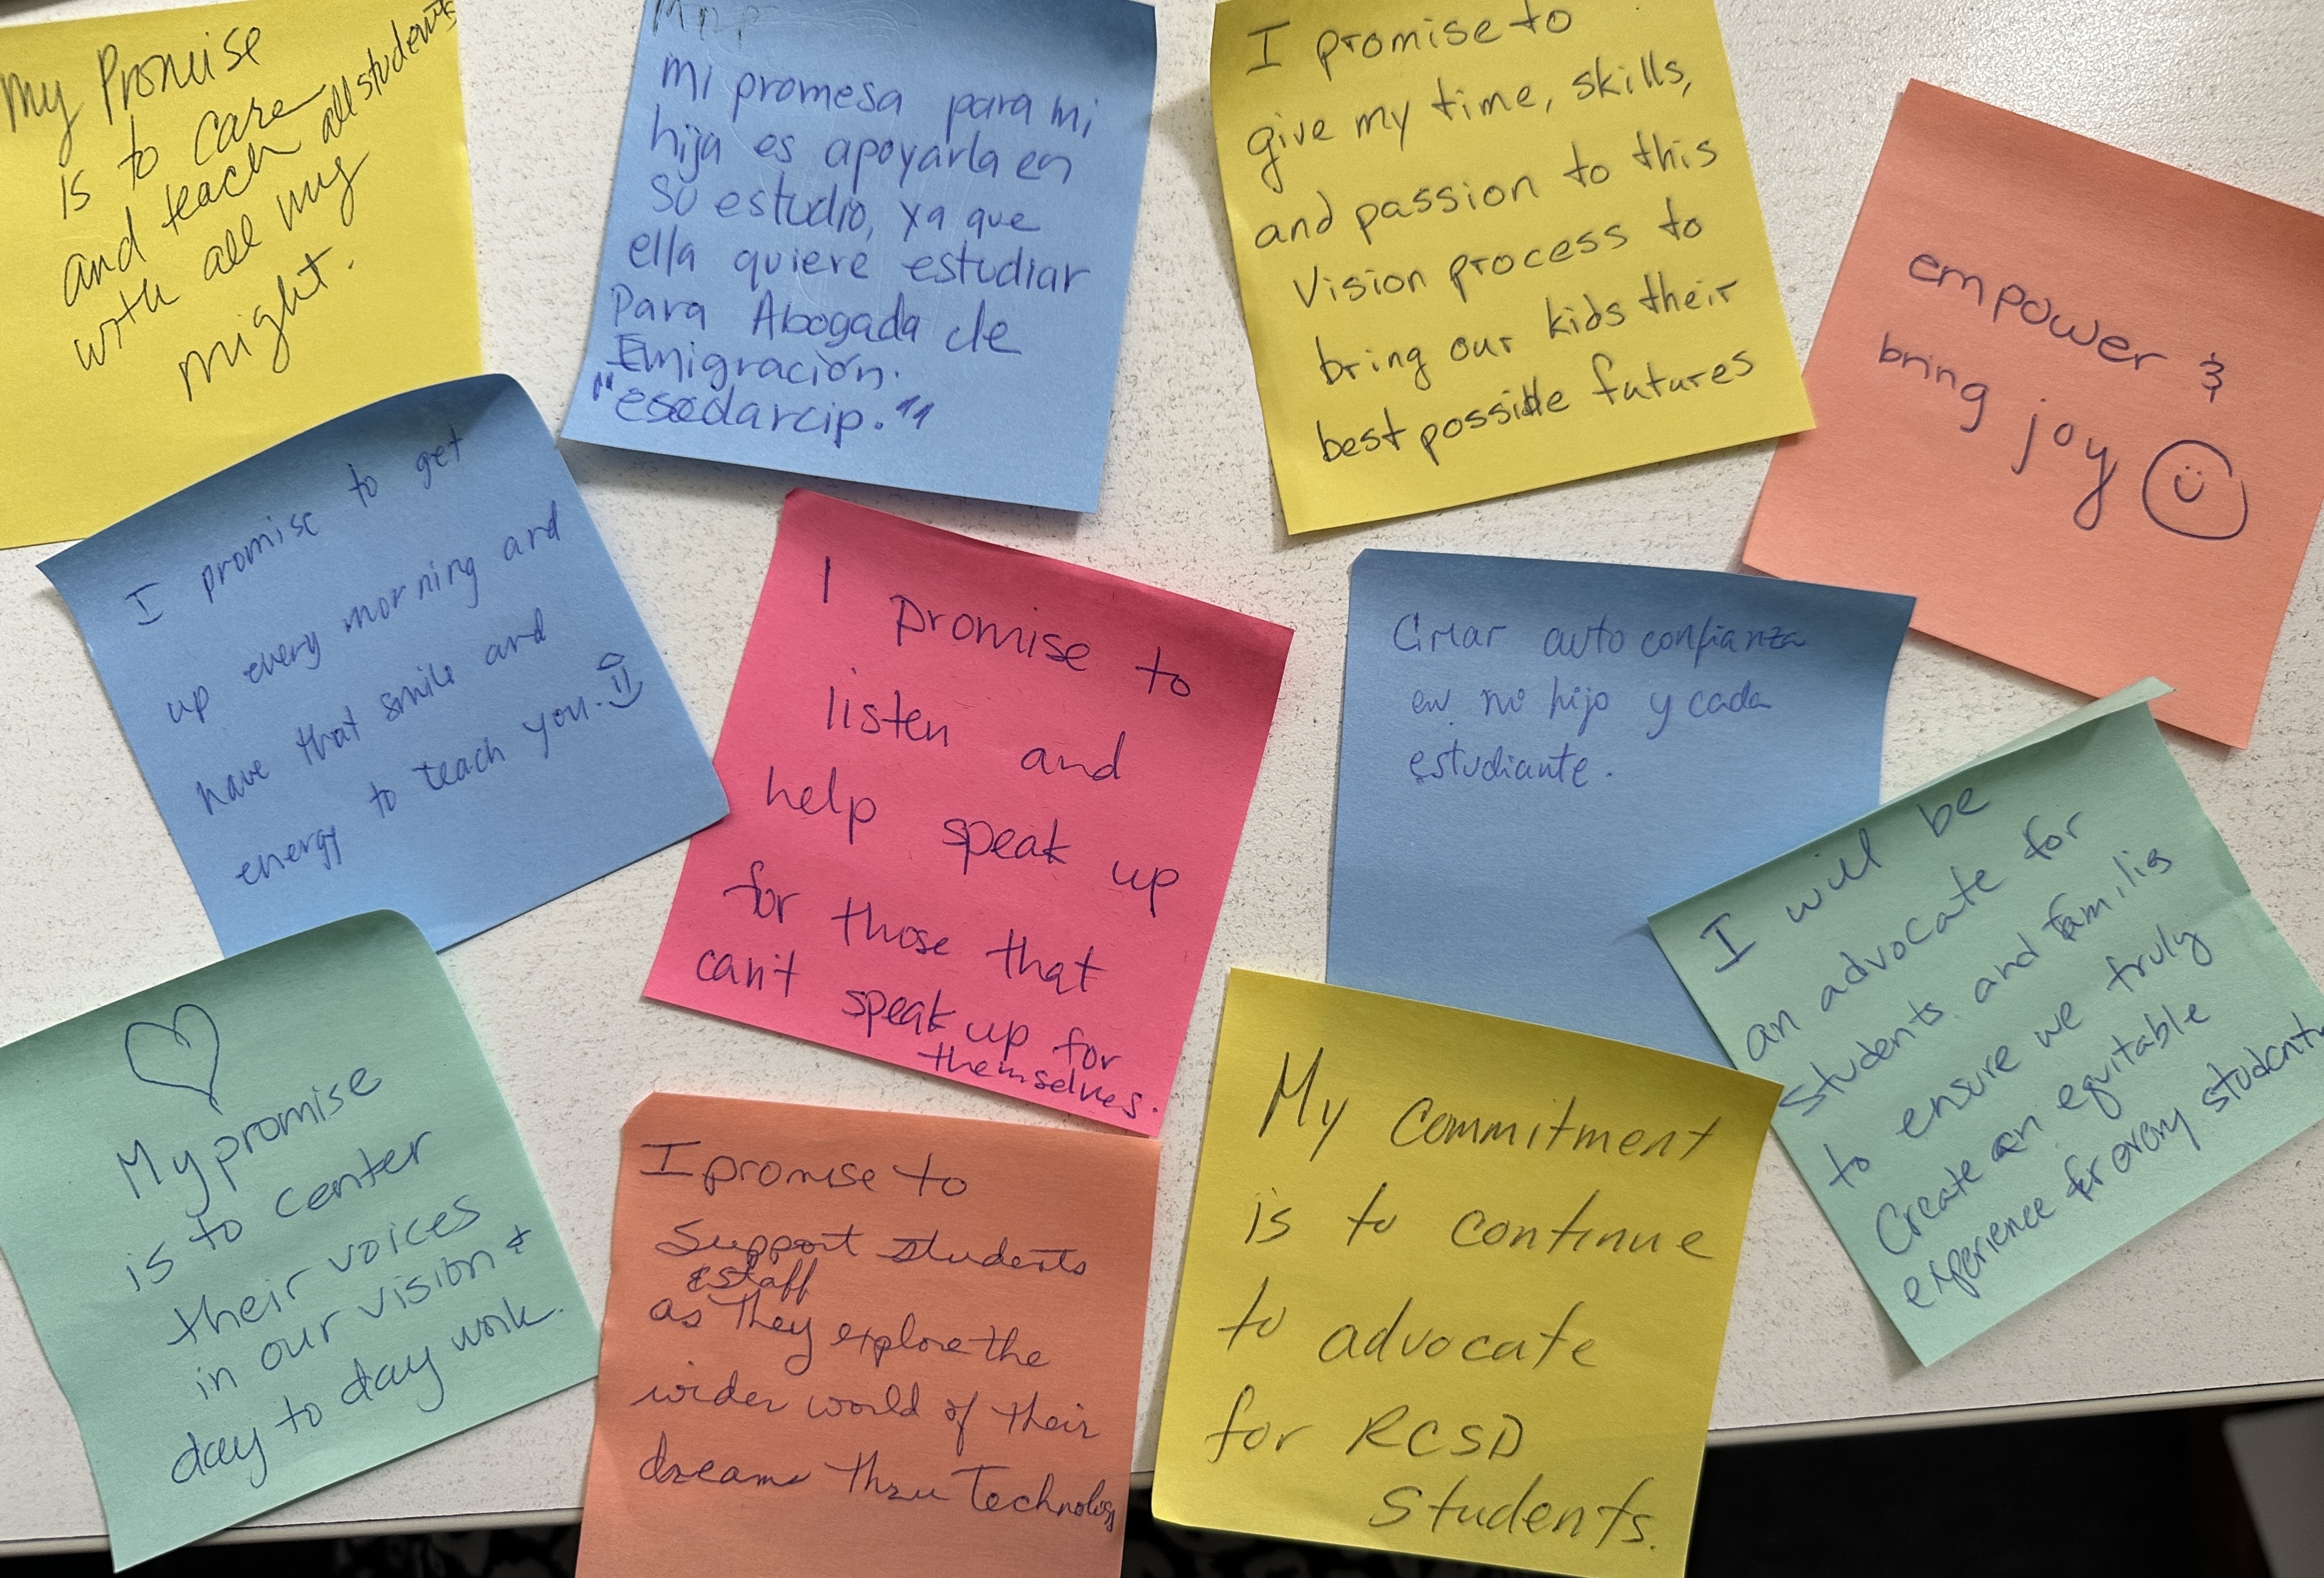 My Promise
is to care
and teach all students
with all my
might.
mi promesa para mi
hija es apoyarla en
su estudio, ya que
ella quiere estudiar
Para Abogada de
Emigración.
I promise to
give my time, skills,
and passion to this
Vision process to
bring our kids their
best possible futures
empower &
bring joy
I promise to get
up every morning and
have that smile and
energy to teach you.
I promise to
listen and
help speak up
for those that
can't speak up for
themselves.
Crear auto confianza
en mi hijo y cada
estudiante.
I will be
an advocate for
students and families
to ensure we truly
Create an equitable
experience for every student
My promise
is to center
their voices
in our vision +
day to day work.
I promise to
Support students
& staff
as they explore the
wider world of their
dreams thru Technology
My commitment
is to continue
to advocate
for RCSD
Students.